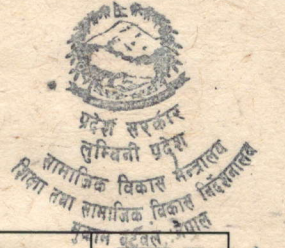 प्रदेश सरकार
लुम्बिनी प्रदेश
सामाजिक विकास मन्त्रालय
शिक्षा तथा सामाजिक विकास निर्देशनालय
बुटवल, नेपाल